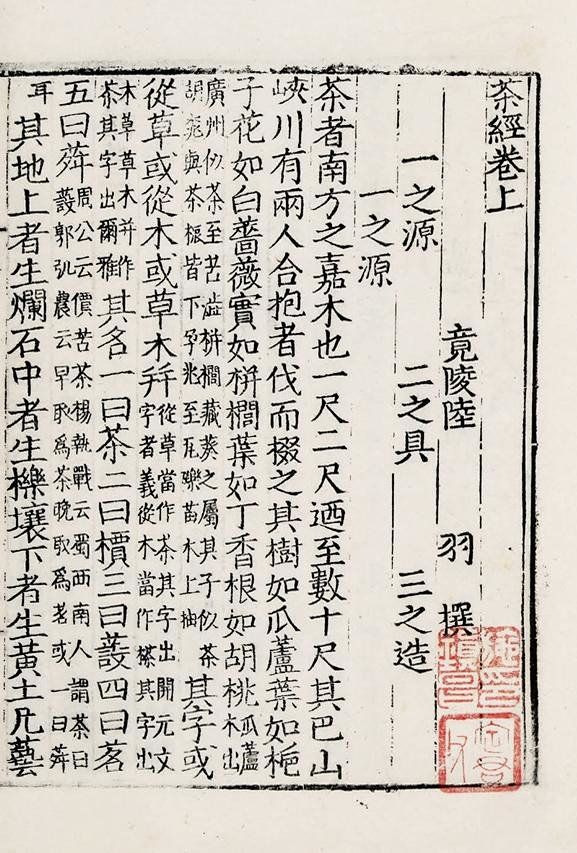 茶經卷上
竟陵陸 羽 撰
一之源 二之具 三之造
一之源
茶者南方之嘉木也一尺二尺迺至數十尺其巴山
峽川有兩人合抱者伐而掇之其樹如瓜蘆葉如梔
子花如白薔薇實如栟櫚葉如丁香根如胡桃瓜蘆木出
廣州似茶至苦澁栟櫚藏葵之屬其子似茶胡桃與茶根皆下孕兆至瓦礫苗木上抽其字或
從草或從木或草木并從草當作茶其字出開元文字者義從木當作㮈其字出
木草草木并作茶其字出爾雅其名一曰茶二曰檟三曰蔎四曰茗
五曰荈周公云價苦茶楊執戟云蜀西南人謂茶曰蔎郭弘農云早取爲茶晚取爲茗或一曰荈
耳其地上者生爛石中者生櫟壤下者生黃土凡藝